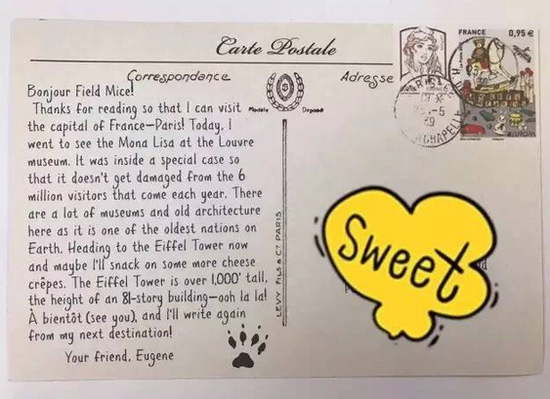 Carte Postale
FRANCE 0,95 €
Correspondance
Adresse
Modele Deposé
Bonjour Field Mice!
Thanks for reading so that I can visit
the capital of France—Paris! Today, I
went to see the Mona Lisa at the Louvre
museum. It was inside a special case so
that it doesn't get damaged from the 6
million visitors that come each year. There
are a lot of museums and old architecture
here as it is one of the oldest nations on
Earth. Heading to the Eiffel Tower now
and maybe I'll snack on some more cheese
crêpes. The Eiffel Tower is over 1,000' tall,
the height of an 81-story building—ooh la la!
À bientôt (see you), and I'll write again
from my next destination!
Your friend, Eugene
LEVY FILS & Cº PARIS
Sweet